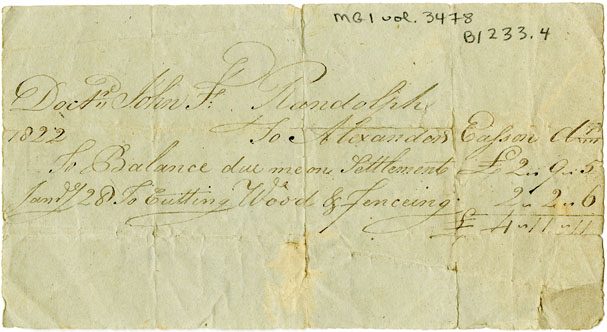 MG1 vol. 3478
B1233.4
Doctr John F. Randolph
1822 To Alexander Easson Dr
To Balance due me on Settlement £2 " 9 " 5
Jany 28 To Cutting Wood & Fenceing 2 " 2 " 6
£ 4 " 11 " 11